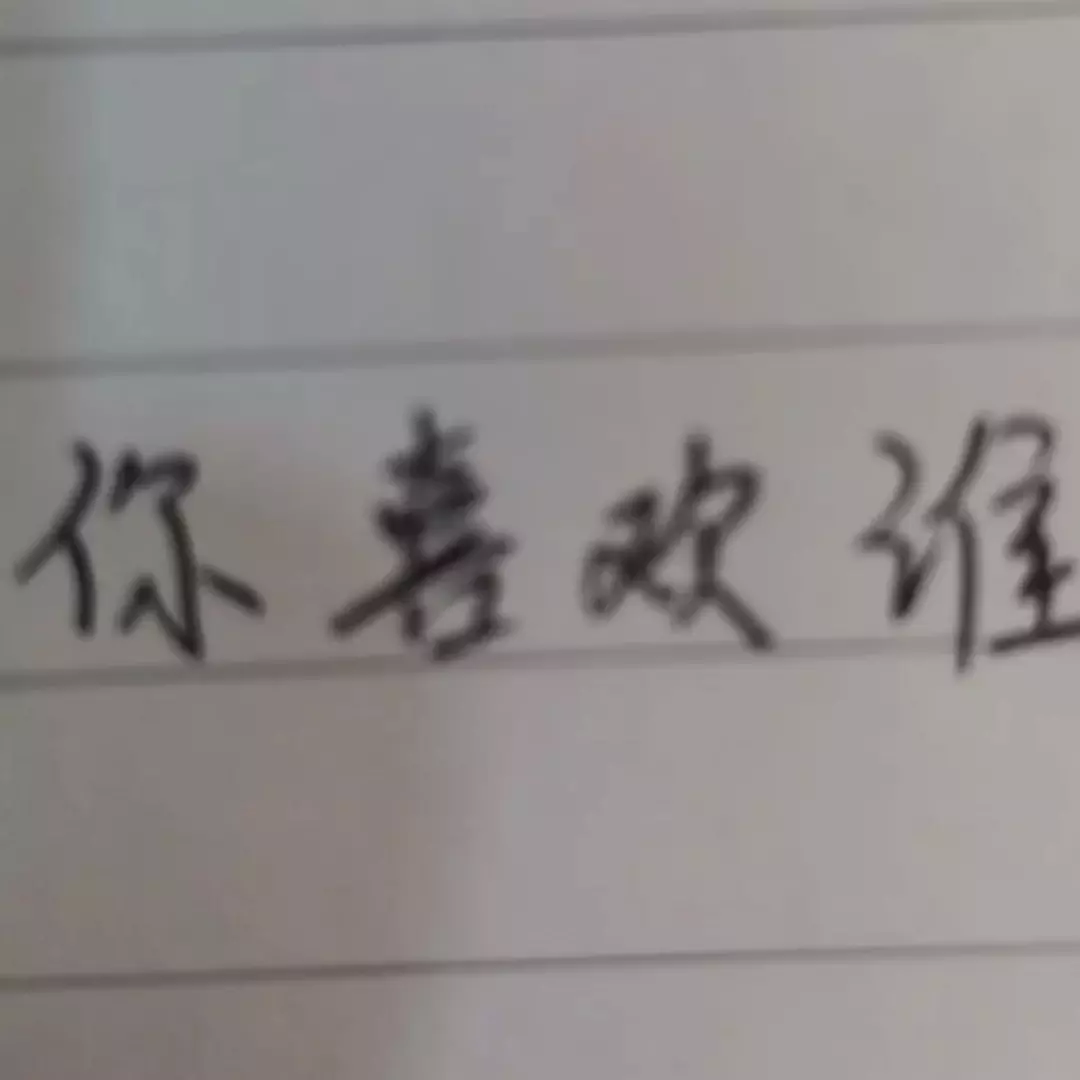 你喜欢谁